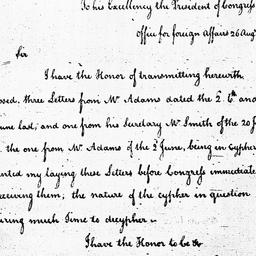 To his Excellency the President of Congress
Office for foreign Affairs 26 Aug
Sir
I have the Honor of transmitting herewith
osed, three Letters from Mr Adams dated the 2. 6th and
une last; and one from his Secretary Mr Smith of the 20 J
the one from Mr Adams of the 2 June, being in Cypher
ented my laying these Letters before Congress immediate
receiving them; the nature of the cypher in question
uiring much Time to decypher—
I have the Honor to be &